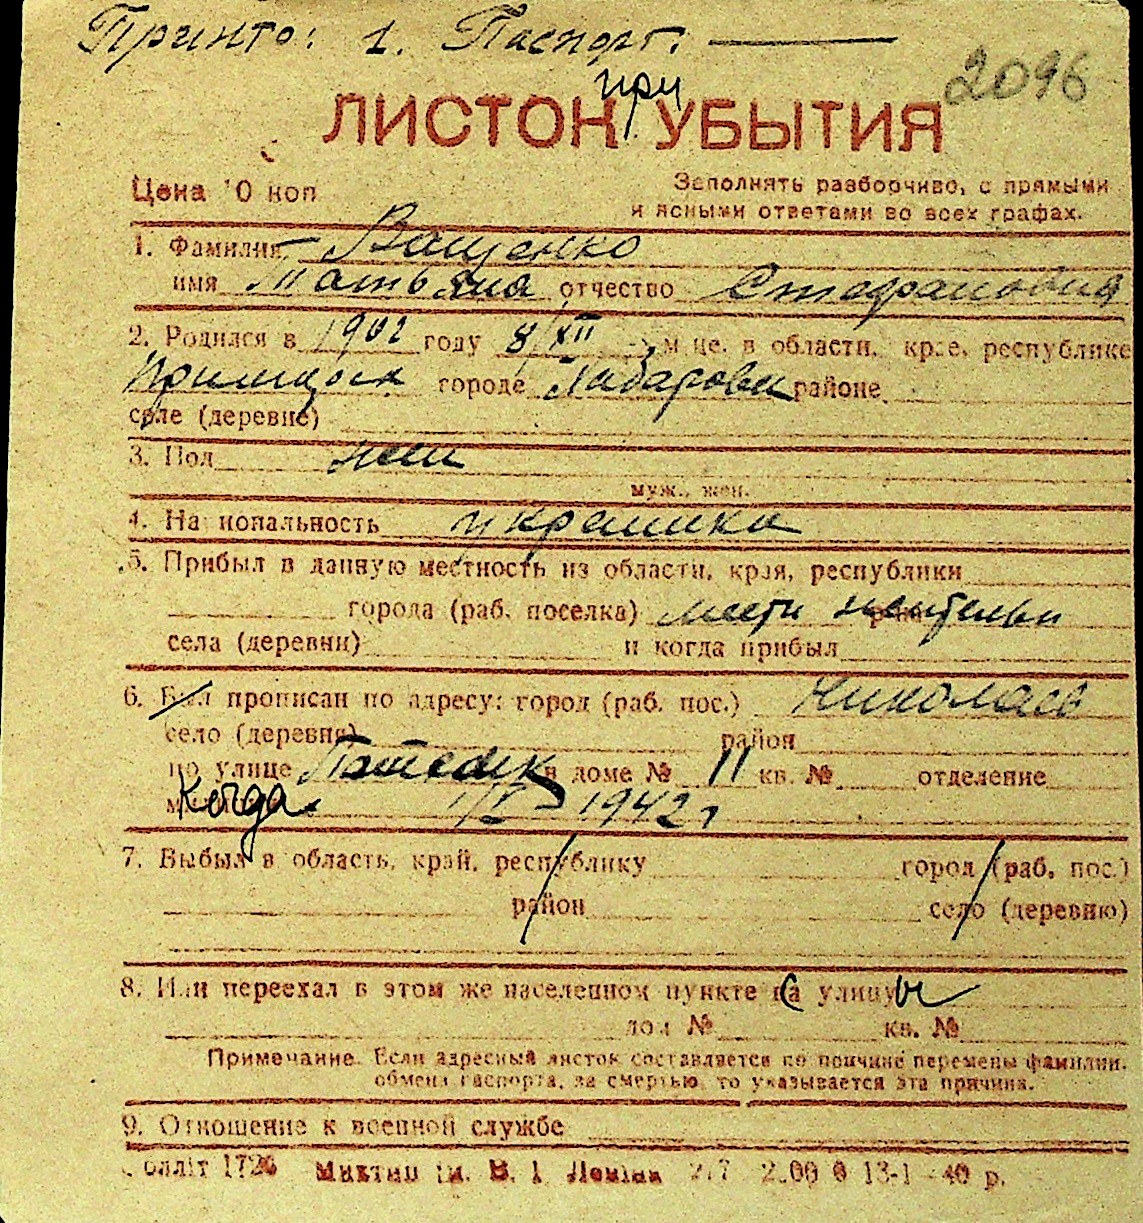 1. Паспорт.
2096
при
ЛИСТОК УБЫТИЯ
Цена 10 коп
Заполнять разборчиво, с прямыми
и ясными ответами во всех графах.
1. Фамилия Ващенко
имя Татьяна отчество Стефановна
2. Родился в 1902 году 8/XII м-це, в области, крае, республике
городе районе
селе (деревне)
3. Пол жен
муж., жен.
4. Национальность украинка
5. Прибыл в данную местность из области, края, республики
города (раб. поселка)
села (деревни) и когда прибыл
6. Был прописан по адресу: город (раб. пос.) Николаев
село (деревня) район
по улице в доме № 11 кв. № отделение
Когда 1942 г
7. Выбыл в область, край, республику город (раб. пос.)
район село (деревню)
8. Или переехал в этом же населенном пункте на улицу
дом № кв. №
Примечание. Если адресный листок составляется по причине перемены фамилии,
обмена паспорта, за смертью, то указывается эта причина.
9. Отношение к военной службе
13-1-40 р.